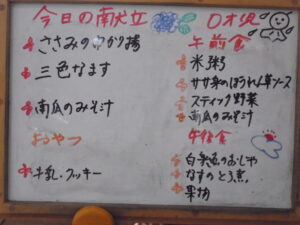 今日の献立
ささみのゆかり揚
三色なます
南瓜のみそ汁
おやつ
牛乳・クッキー
0才児
午前食
米粥
ササ身のほうれん草ソース
スティック野菜
南瓜のみそ汁
午後食
白菜のおじや
なすのとろ煮
果物